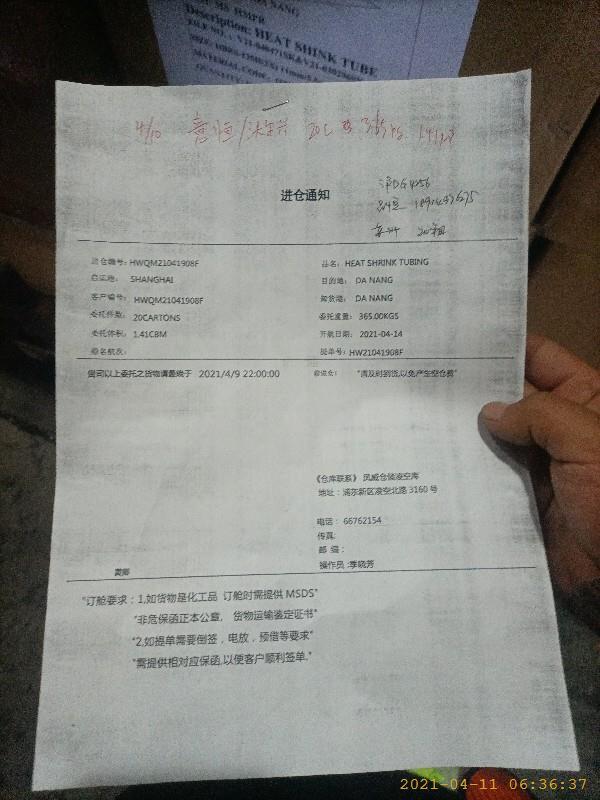 Description: HEAT SHINK TUBE
4/10
进仓通知
进仓编号: HWQM21041908F 品名: HEAT SHRINK TUBING
启运港: SHANGHAI 目的地: DA NANG
客户编号: HWQM21041908F 卸货港: DA NANG
委托件数: 20CARTONS 委托重量: 365.00KGS
委托体积: 1.41CBM 开航日期: 2021-04-14
船名航次: 提单号: HW21041908F
贵司以上委托之货物请最晚于 2021/4/9 22:00:00 前进仓: "请及时到货,以免产生空仓费"
《仓库联系》 凤威仓储凌空库
地址: 浦东新区凌空北路 3160 号
电话: 66762154
传真:
邮 编:
操作员:季晓芳
"订舱要求: 1,如货物是化工品 订舱时需提供 MSDS"
"非危保函正本公章, 货物运输鉴定证书"
"2,如提单需要倒签, 电放, 预借等要求"
"需提供相对应保函,以便客户顺利签单."
2021-04-11 06:36:37